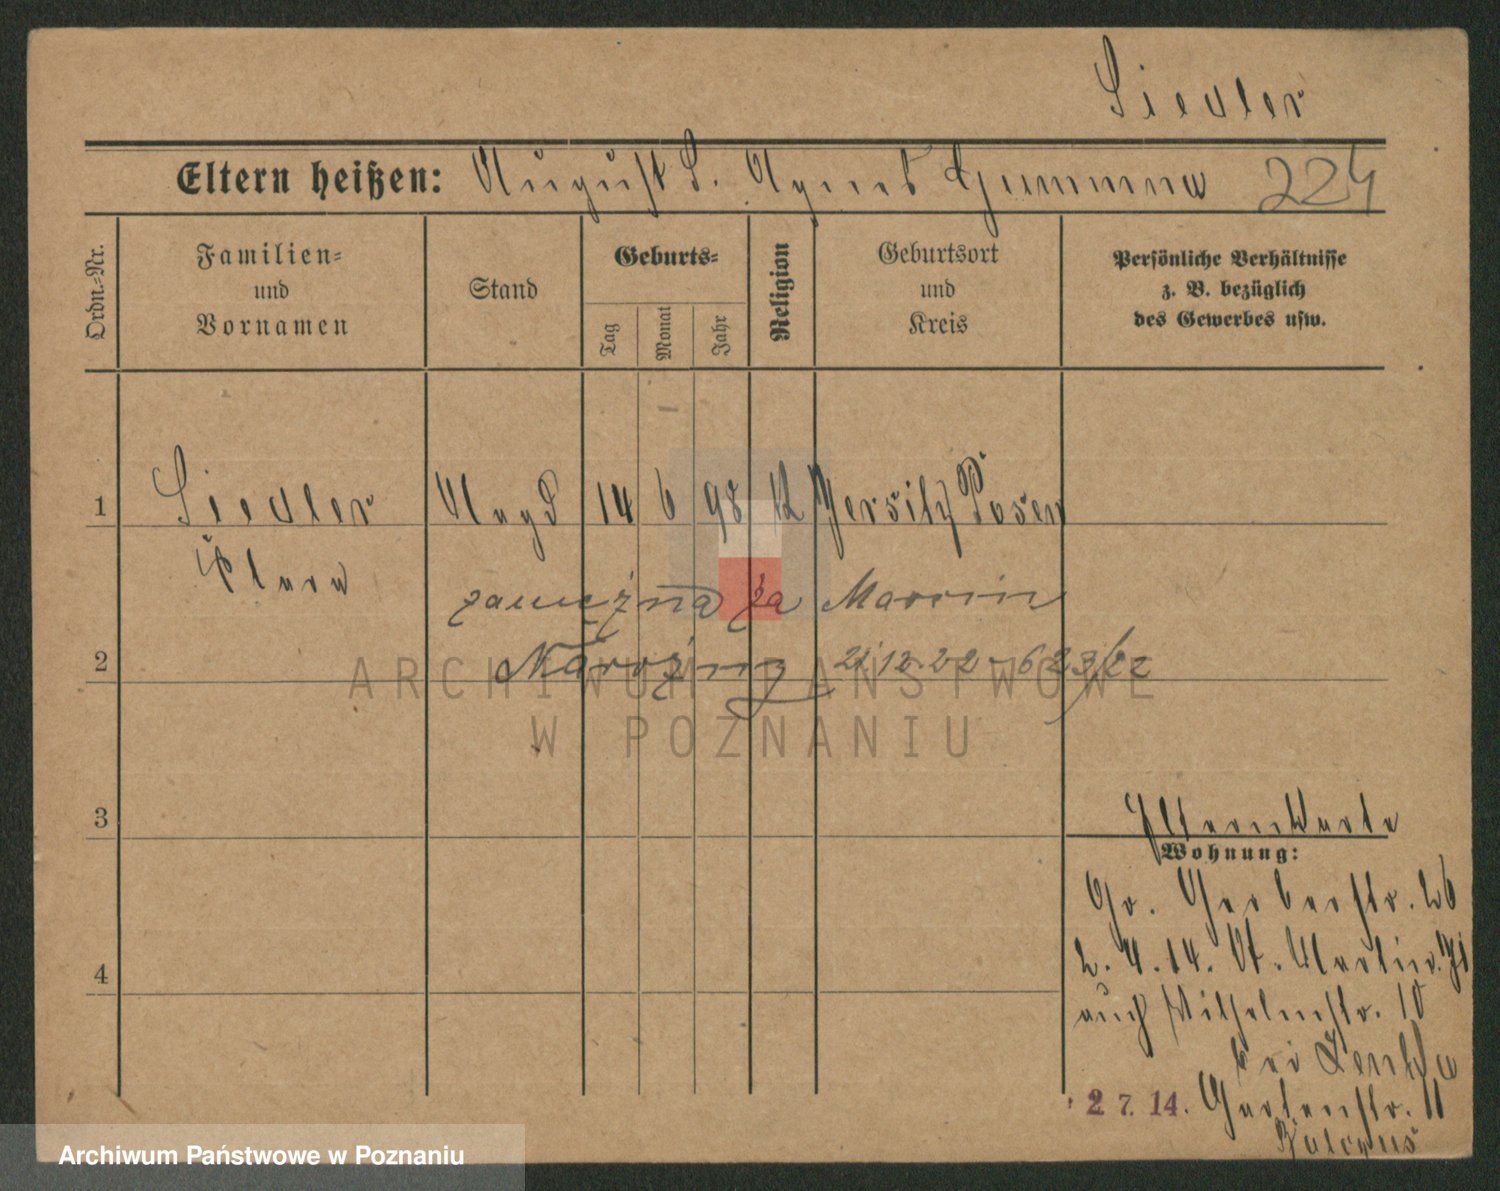 Siedler
Eltern heißen: August S. Agnes Gummna 224
Ordn.-Nr.
Familien-
und
Vornamen
Stand
Geburts-
Tag
Monat
Jahr
Religion
Geburtsort
und
Kreis
Persönliche Verhältnisse
z. B. bezüglich
des Gewerbes usw.
1 Siedler Magd 14 6 98 k Jersitz Posen
Klara
zamężna za Marcin
2 Narożny 21.12.22
3 Elternkarte
Wohnung:
Gr. Gerberstr. 26
2. 4. 14. St. Martin
4
auch Wilhelmstr. 10
bei
2 7. 14. Gartenstr. 11
ARCHIWUM PAŃSTWOWE
W POZNANIU
Archiwum Państwowe w Poznaniu